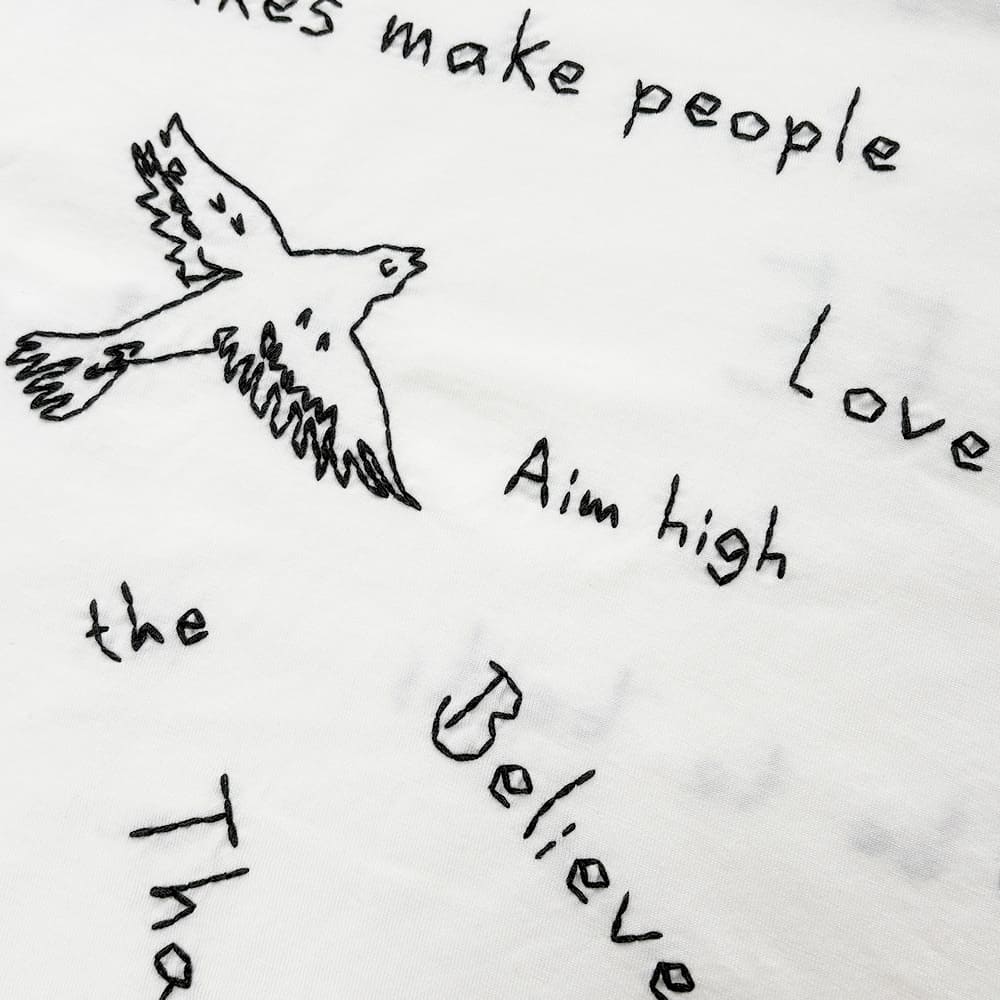 make people
Love
Aim high
the
Believe